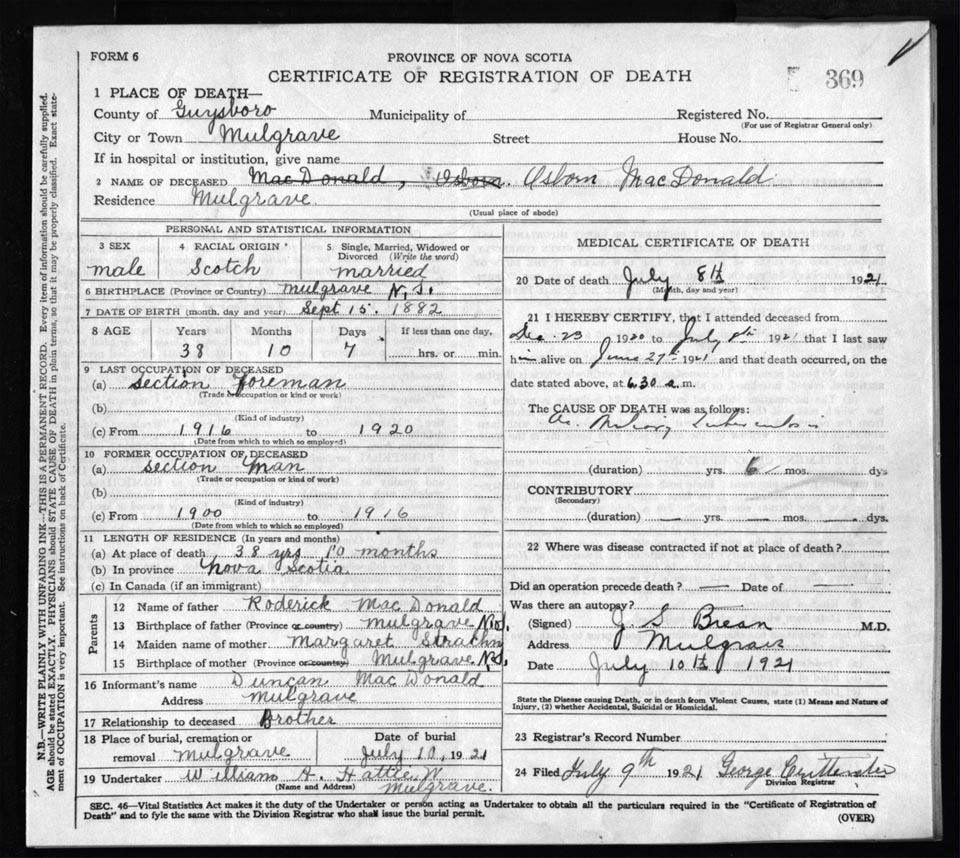 FORM 6
PROVINCE OF NOVA SCOTIA
CERTIFICATE OF REGISTRATION OF DEATH
369
1 PLACE OF DEATH—
County of Guysboro Municipality of Registered No.
(For use of Registrar General only)
City or Town Mulgrave Street House No.
If in hospital or institution, give name
2 NAME OF DECEASED MacDonald, Osborn. Osborn MacDonald
Residence Mulgrave.
(Usual place of abode)
PERSONAL AND STATISTICAL INFORMATION
3 SEX 4 RACIAL ORIGIN 5 Single, Married, Widowed or Divorced (Write the word)
male Scotch married
6 BIRTHPLACE (Province or Country) Mulgrave N.S.
7 DATE OF BIRTH (month, day and year) Sept 15. 1882
8 AGE Years Months Days If less than one day,
38 10 7 hrs. or min.
9 LAST OCCUPATION OF DECEASED
(a) Section Foreman
(Trade or occupation or kind or work)
(b)
(Kind of industry)
(c) From 1916 to 1920
(Date from which to which so employed)
10 FORMER OCCUPATION OF DECEASED
(a) Section Man
(Trade or occupation or kind of work)
(b)
(Kind of industry)
(c) From 1900 to 1916
(Date from which to which so employed)
11 LENGTH OF RESIDENCE (In years and months)
(a) At place of death, 38 yrs. 10 months
(b) In province Nova Scotia
(c) In Canada (if an immigrant)
Parents
12 Name of father Roderick MacDonald
13 Birthplace of father (Province or country) Mulgrave N.S.
14 Maiden name of mother Margaret
15 Birthplace of mother (Province or country) Mulgrave N.S.
16 Informant's name Duncan MacDonald
Address Mulgrave
17 Relationship to deceased Brother
18 Place of burial, cremation or removal Mulgrave Date of burial July 10, 1921
19 Undertaker William A. Hattie
(Name and Address) Mulgrave.
MEDICAL CERTIFICATE OF DEATH
20 Date of death July 8th 1921
(Month, day and year)
21 I HEREBY CERTIFY, that I attended deceased from
Dec. 23 1920 to July 8th 1921 that I last saw
him alive on June 27th 1921 and that death occurred, on the
date stated above, at 6.30 a.m.
The CAUSE OF DEATH was as follows:
Ac. Miliary Tuberculosis
(duration) yrs. 6 mos. dys
CONTRIBUTORY
(Secondary)
(duration) — yrs. — mos. — dys.
22 Where was disease contracted if not at place of death?
Did an operation precede death? — Date of —
Was there an autopsy?
(Signed) J. S. Brean M.D.
Address Mulgrave
Date July 10th 1921
State the Disease causing Death, or in death from Violent Causes, state (1) Means and Nature of
Injury, (2) whether Accidental, Suicidal or Homicidal.
23 Registrar's Record Number
24 Filed July 9th 1921 George Crittenden
Division Registrar
SEC. 46—Vital Statistics Act makes it the duty of the Undertaker or person acting as Undertaker to obtain all the particulars required in the "Certificate of Registration of
Death" and to fyle the same with the Division Registrar who shall issue the burial permit.
(OVER)
N.B.—WRITE PLAINLY WITH UNFADING INK—THIS IS A PERMANENT RECORD. Every item of information should be carefully supplied.
AGE should be stated EXACTLY. PHYSICIANS should STATE CAUSE OF DEATH in plain terms, so that it may be properly classified. Exact state-
ment of OCCUPATION is very important. See instructions on back of Certificate.